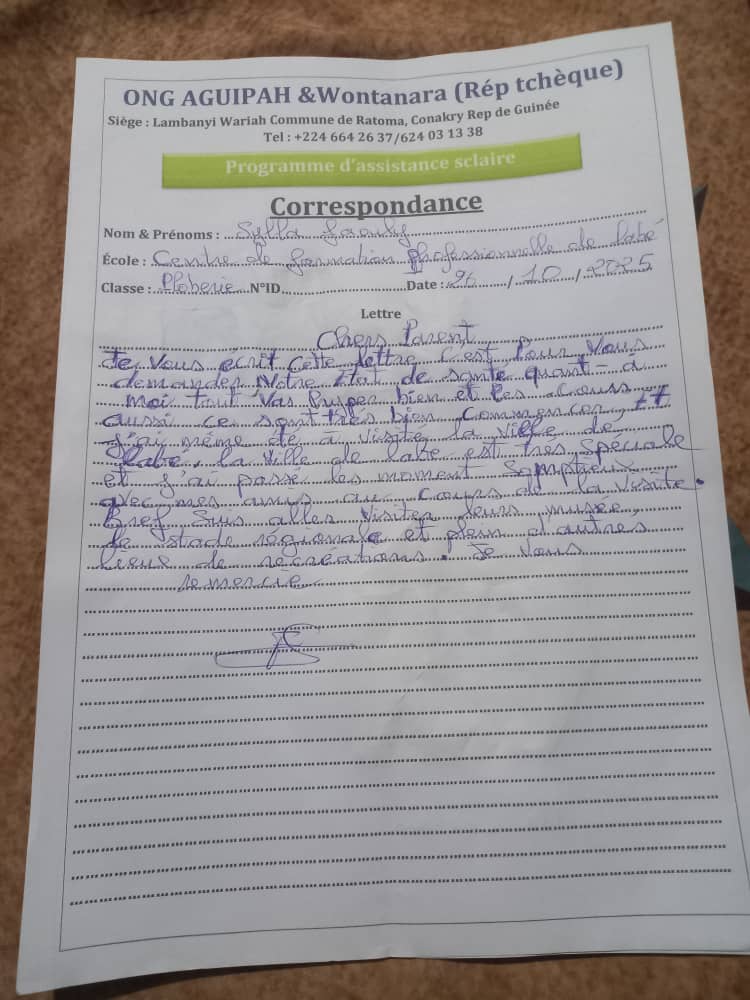 ONG AGUIPAH &Wontanara (Rép tchèque)
Siège : Lambanyi Wariah Commune de Ratoma, Conakry Rep de Guinée
Tel : +224 664 26 37/624 03 13 38
Programme d'assistance sclaire
Correspondance
Nom & Prénoms : Sylla
École : Centre de formation professionnelle de labé
Classe : Ploberie N°ID Date : 26 / 10 / 2025
Lettre
Chers Parent
Je vous ecrit cette lettre c'est pour vous
demander votre état de sante quant-à
moi tout vas super bien et les cours
aussi ce sont très bien commencer et
j'ai même dé à visité la ville de
labé, la ville de labe est très spéciale
et j'ai passé les moment somptieux
avec mes amis au cours de la visite.
Bref suis alles visiter leurs musée
le stade régionale et plein d'autres
lieux de recréations. Je vous
remercie